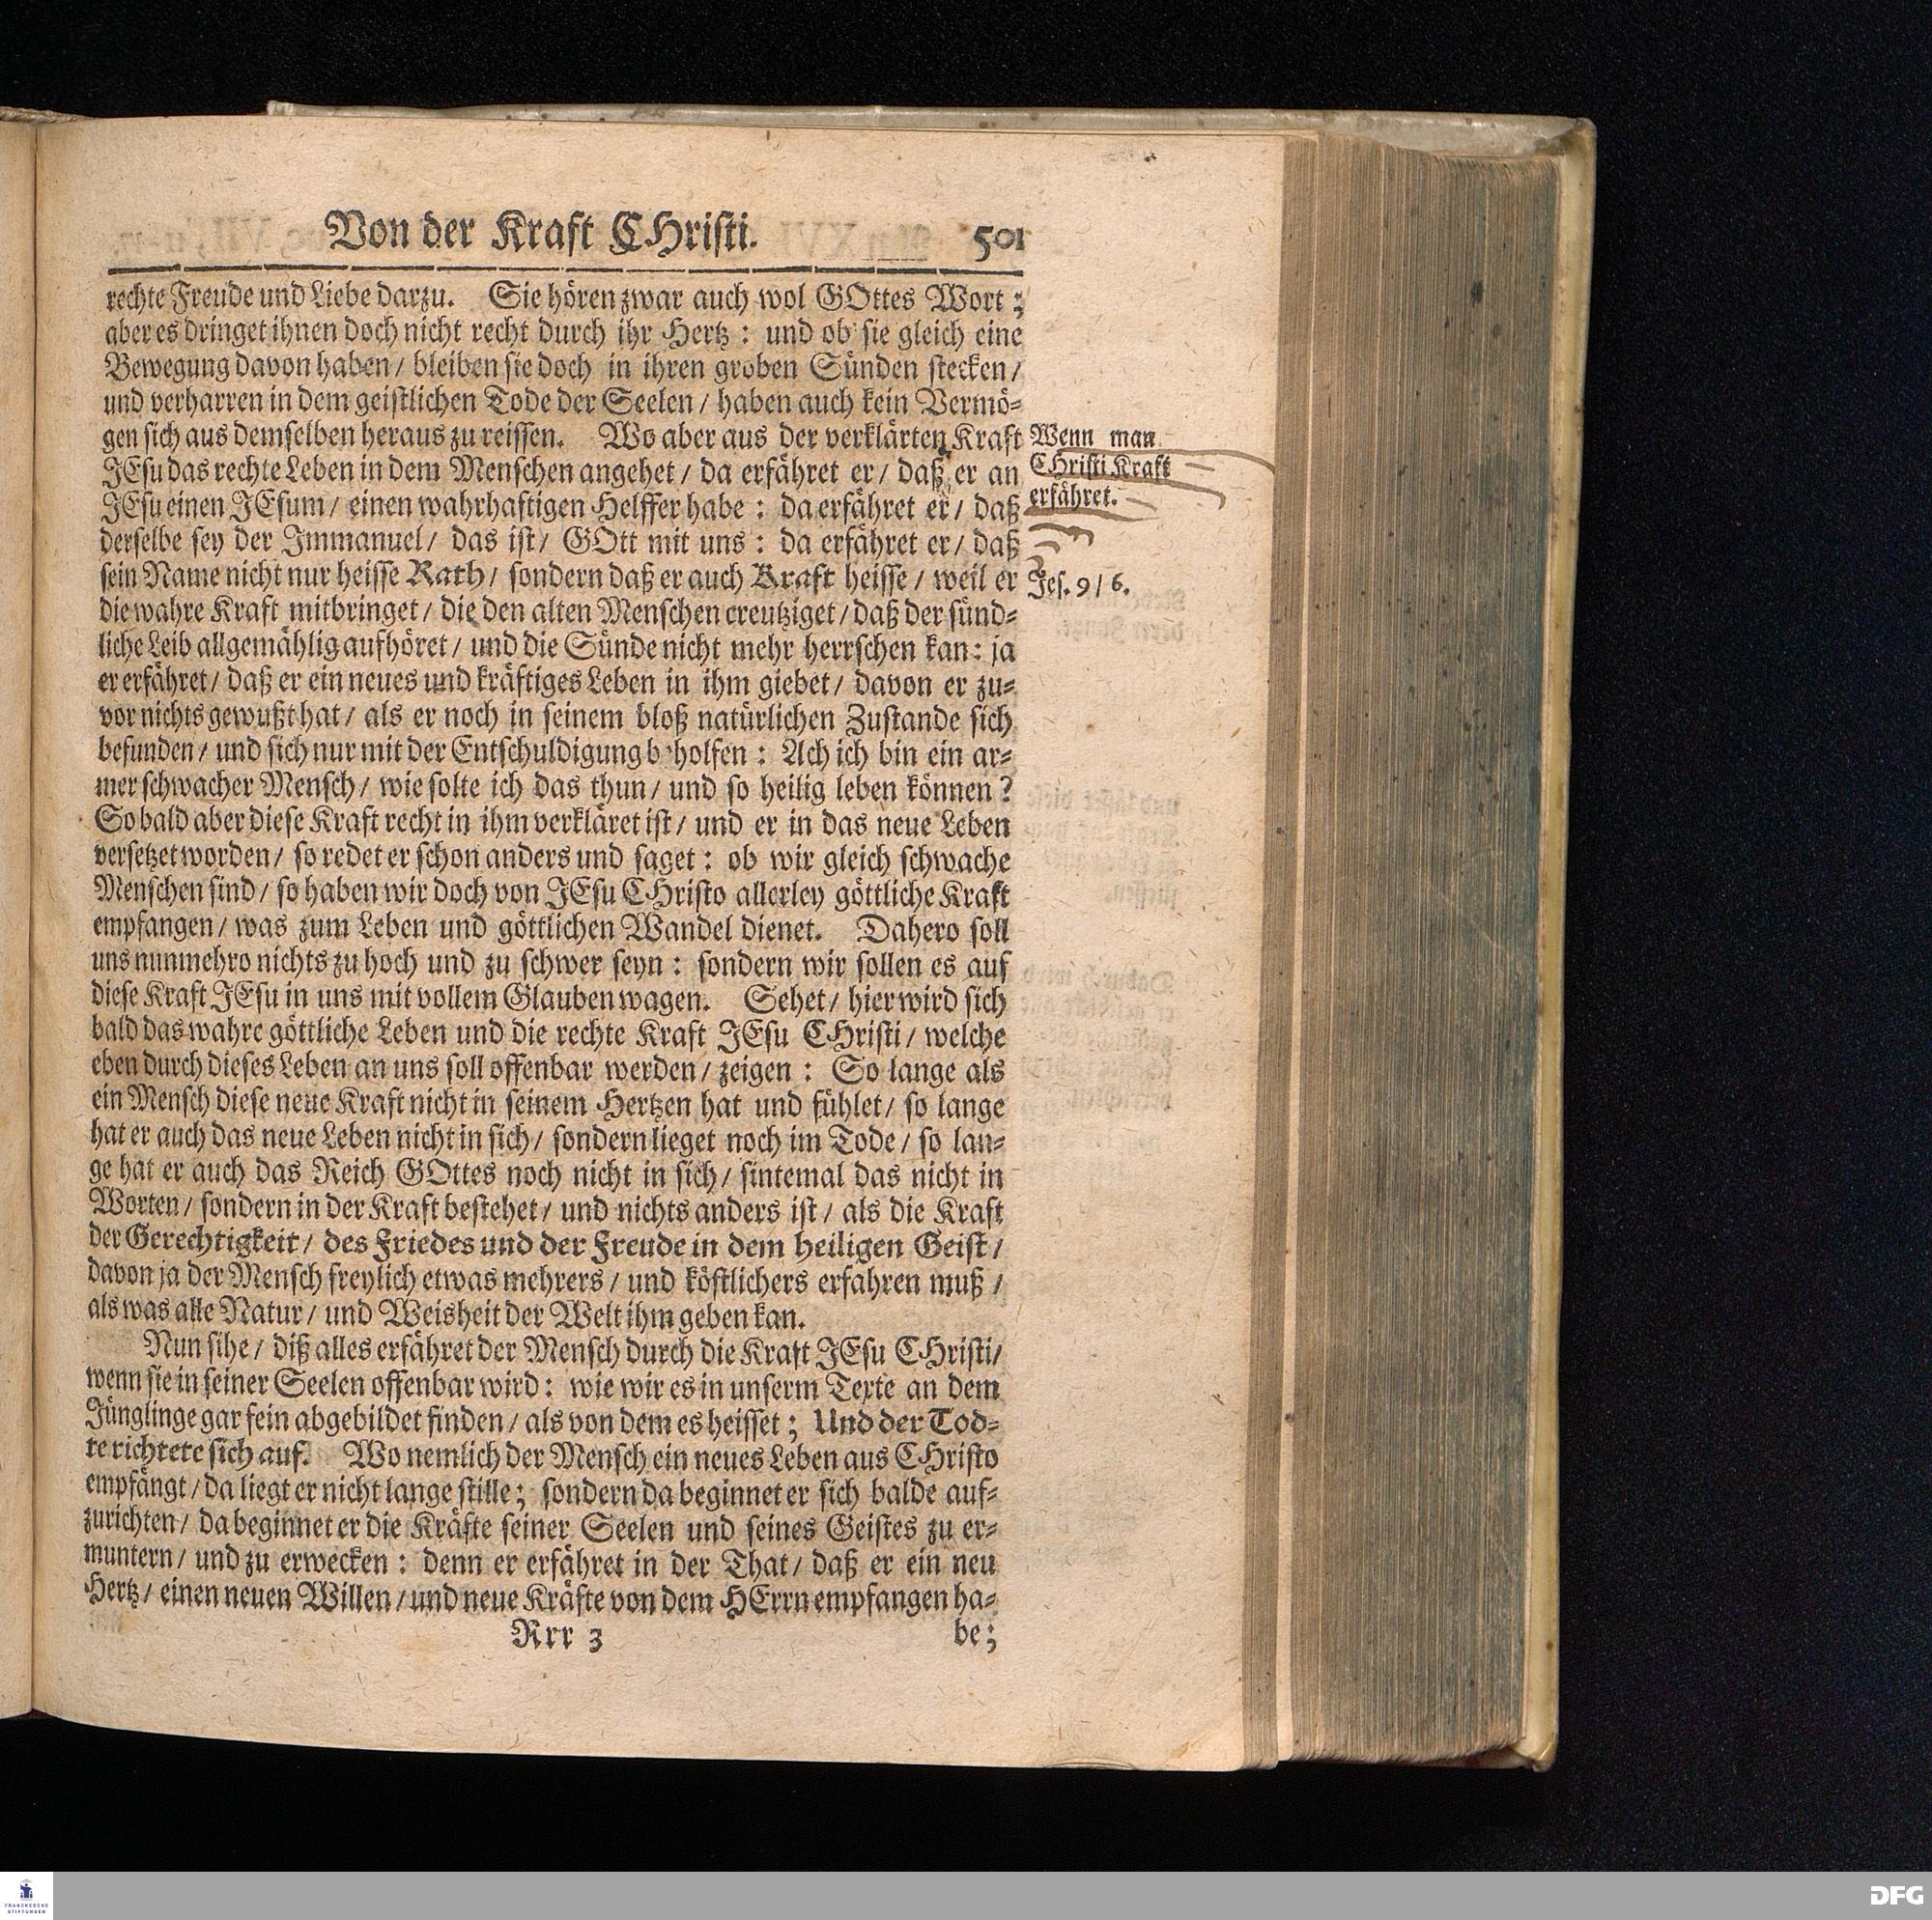 Von der Kraft CHristi. 501
rechte Freude und Liebe darzu. Sie hören zwar auch wol GOttes Wort;
aber es dringet ihnen doch nicht recht durch ihr Hertz: und ob sie gleich eine
Bewegung davon haben/ bleiben sie doch in ihren groben Sünden stecken/
und verharren in dem geistlichen Tode der Seelen/ haben auch kein Vermö-
gen sich aus demselben heraus zu reissen. Wo aber aus der verklärten Kraft
JEsu das rechte Leben in dem Menschen angehet/ da erfähret er/ daß er an
JEsu einen JEsum/ einen wahrhaftigen Helffer habe: da erfähret er/ daß
derselbe sey der Immanuel/ das ist/ GOtt mit uns: da erfähret er/ daß
sein Name nicht nur heisse Rath/ sondern daß er auch Kraft heisse/ weil er
die wahre Kraft mitbringet/ die den alten Menschen creutziget/ daß der sünd-
liche Leib allgemählig aufhöret/ und die Sünde nicht mehr herrschen kan: ja
er erfähret/ daß er ein neues und kräftiges Leben in ihm giebet/ davon er zu-
vor nichts gewußt hat/ als er noch in seinem bloß natürlichen Zustande sich
befunden/ und sich nur mit der Entschuldigung b holfen: Ach ich bin ein ar-
mer schwacher Mensch/ wie solte ich das thun/ und so heilig leben können?
So bald aber diese Kraft recht in ihm verkläret ist/ und er in das neue Leben
versetzet worden/ so redet er schon anders und saget: ob wir gleich schwache
Menschen sind/ so haben wir doch von JEsu CHristo allerley göttliche Kraft
empfangen/ was zum Leben und göttlichen Wandel dienet. Dahero soll
uns nunmehro nichts zu hoch und zu schwer seyn: sondern wir sollen es auf
diese Kraft JEsu in uns mit vollem Glauben wagen. Sehet/ hier wird sich
bald das wahre göttliche Leben und die rechte Kraft JEsu CHristi/ welche
eben durch dieses Leben an uns soll offenbar werden/ zeigen: So lange als
ein Mensch diese neue Kraft nicht in seinem Hertzen hat und fühlet/ so lange
hat er auch das neue Leben nicht in sich/ sondern lieget noch im Tode/ so lan-
ge hat er auch das Reich GOttes noch nicht in sich/ sintemal das nicht in
Worten/ sondern in der Kraft bestehet/ und nichts anders ist/ als die Kraft
der Gerechtigkeit/ des Friedes und der Freude in dem heiligen Geist/
davon ja der Mensch freylich etwas mehrers/ und köstlichers erfahren muß/
als was alle Natur/ und Weisheit der Welt ihm geben kan.
Nun sihe/ diß alles erfähret der Mensch durch die Kraft JEsu CHristi/
wenn sie in seiner Seelen offenbar wird: wie wir es in unserm Texte an dem
Jünglinge gar fein abgebildet finden/ als von dem es heisset; Und der Tod-
te richtete sich auf. Wo nemlich der Mensch ein neues Leben aus CHristo
empfängt/ da liegt er nicht lange stille; sondern da beginnet er sich balde auf-
zurichten/ da beginnet er die Kräfte seiner Seelen und seines Geistes zu er-
muntern/ und zu erwecken: denn er erfähret in der That/ daß er ein neu
Hertz/ einen neuen Willen/ und neue Kräfte von dem HErrn empfangen ha-
Rrr 3 be;
Wenn man
CHristi Kraft
erfähret.
Jes. 9/6.
FRANCKESCHE
STIFTUNGEN
DFG